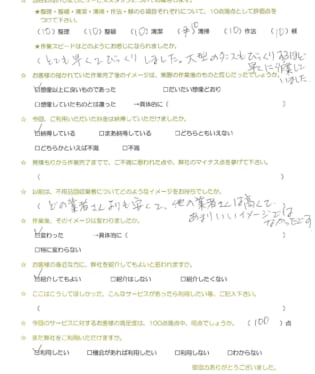 ☆整理・整頓・清潔・清掃・作法・躾の6項目それぞれについて、10点満点として評価点を
つけて下さい。
(10)整理 (10)整頓 (10)清潔 (10)清掃 (10)作法 (10)躾
★作業スピードはどのようにお感じになられましたか。
(とても早くてびっくりしました。大型のタンスもびっくりするほど
早くに作業して
いました。
☆ お客様の描かれていた作業完了後のイメージは、実際の作業後のものと同じだったでしょうか。
☑想像以上に良いものであった □だいたい想像どおり
□想像していたものとは違った →具体的に( )
☆ 今回、ご利用いただいた料金は納得していただけましたか。
☑納得している □まあ納得している □どちらともいえない
□どちらかといえば不満 □不満
☆ 見積もりから作業完了までで、ご不満に思われた点や、弊社のマイナス点を挙げて下さい。
( )
☆ 以前は、不用品回収業者についてどのようなイメージをお持ちでしたか。
(どの業者さんよりも安くて、他の業者さんは高くて、
あまりいいイメージでは
なかったです
☆ 作業後、そのイメージは変わりましたか。
☑変わった →具体的に( )
□特に変わらない
☆ お客様の身近な方に、弊社を紹介してもよいと思われますか。
☑紹介してもよい □紹介はしない □紹介したくない
☆ ここはこうしてほしかった、こんなサービスがあったら利用したい等、ご記入下さい。
( )
☆ 今回のサービスに対するお客様の満足度は、100点満点中、何点でしょうか。 (100)点
☆ また弊社をご利用いただけますか。
☑利用したい □機会があれば利用したい □利用しない □わからない
御協力ありがとうございました。